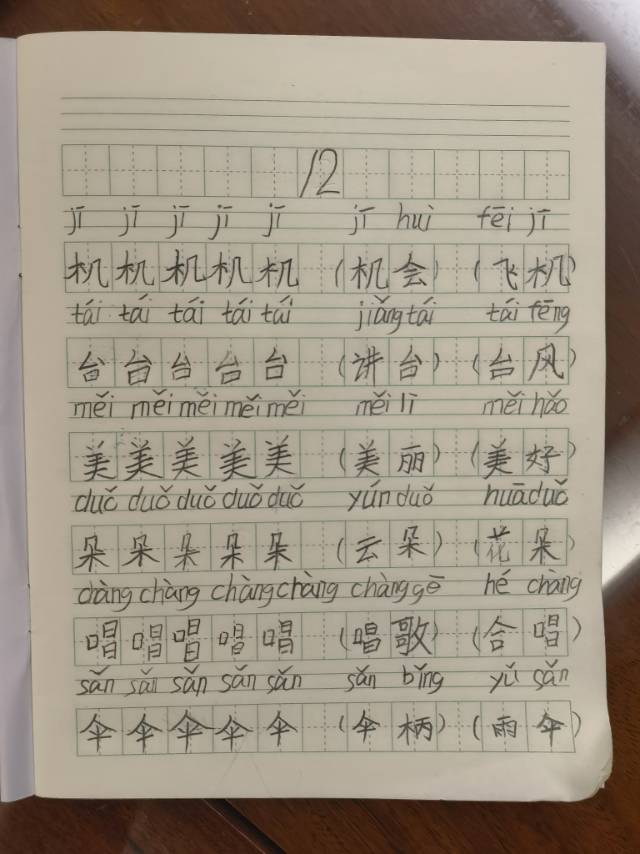 12
jī jī jī jī jī jī huì fēi jī
机 机 机 机 机 (机会) (飞机)
tái tái tái tái tái jiǎng tái tái fēng
台 台 台 台 台 (讲台) (台风)
měi měi měi měi měi měi lì měi hǎo
美 美 美 美 美 (美丽) (美好)
duǒ duǒ duǒ duǒ duǒ yún duǒ huā duǒ
朵 朵 朵 朵 朵 (云朵) (花朵)
chàng chàng chàng chàng chàng gē hé chàng
唱 唱 唱 唱 唱 (唱歌) (合唱)
sǎn sǎn sǎn sǎn sǎn sǎn bǐng yǔ sǎn
伞 伞 伞 伞 伞 (伞柄) (雨伞)